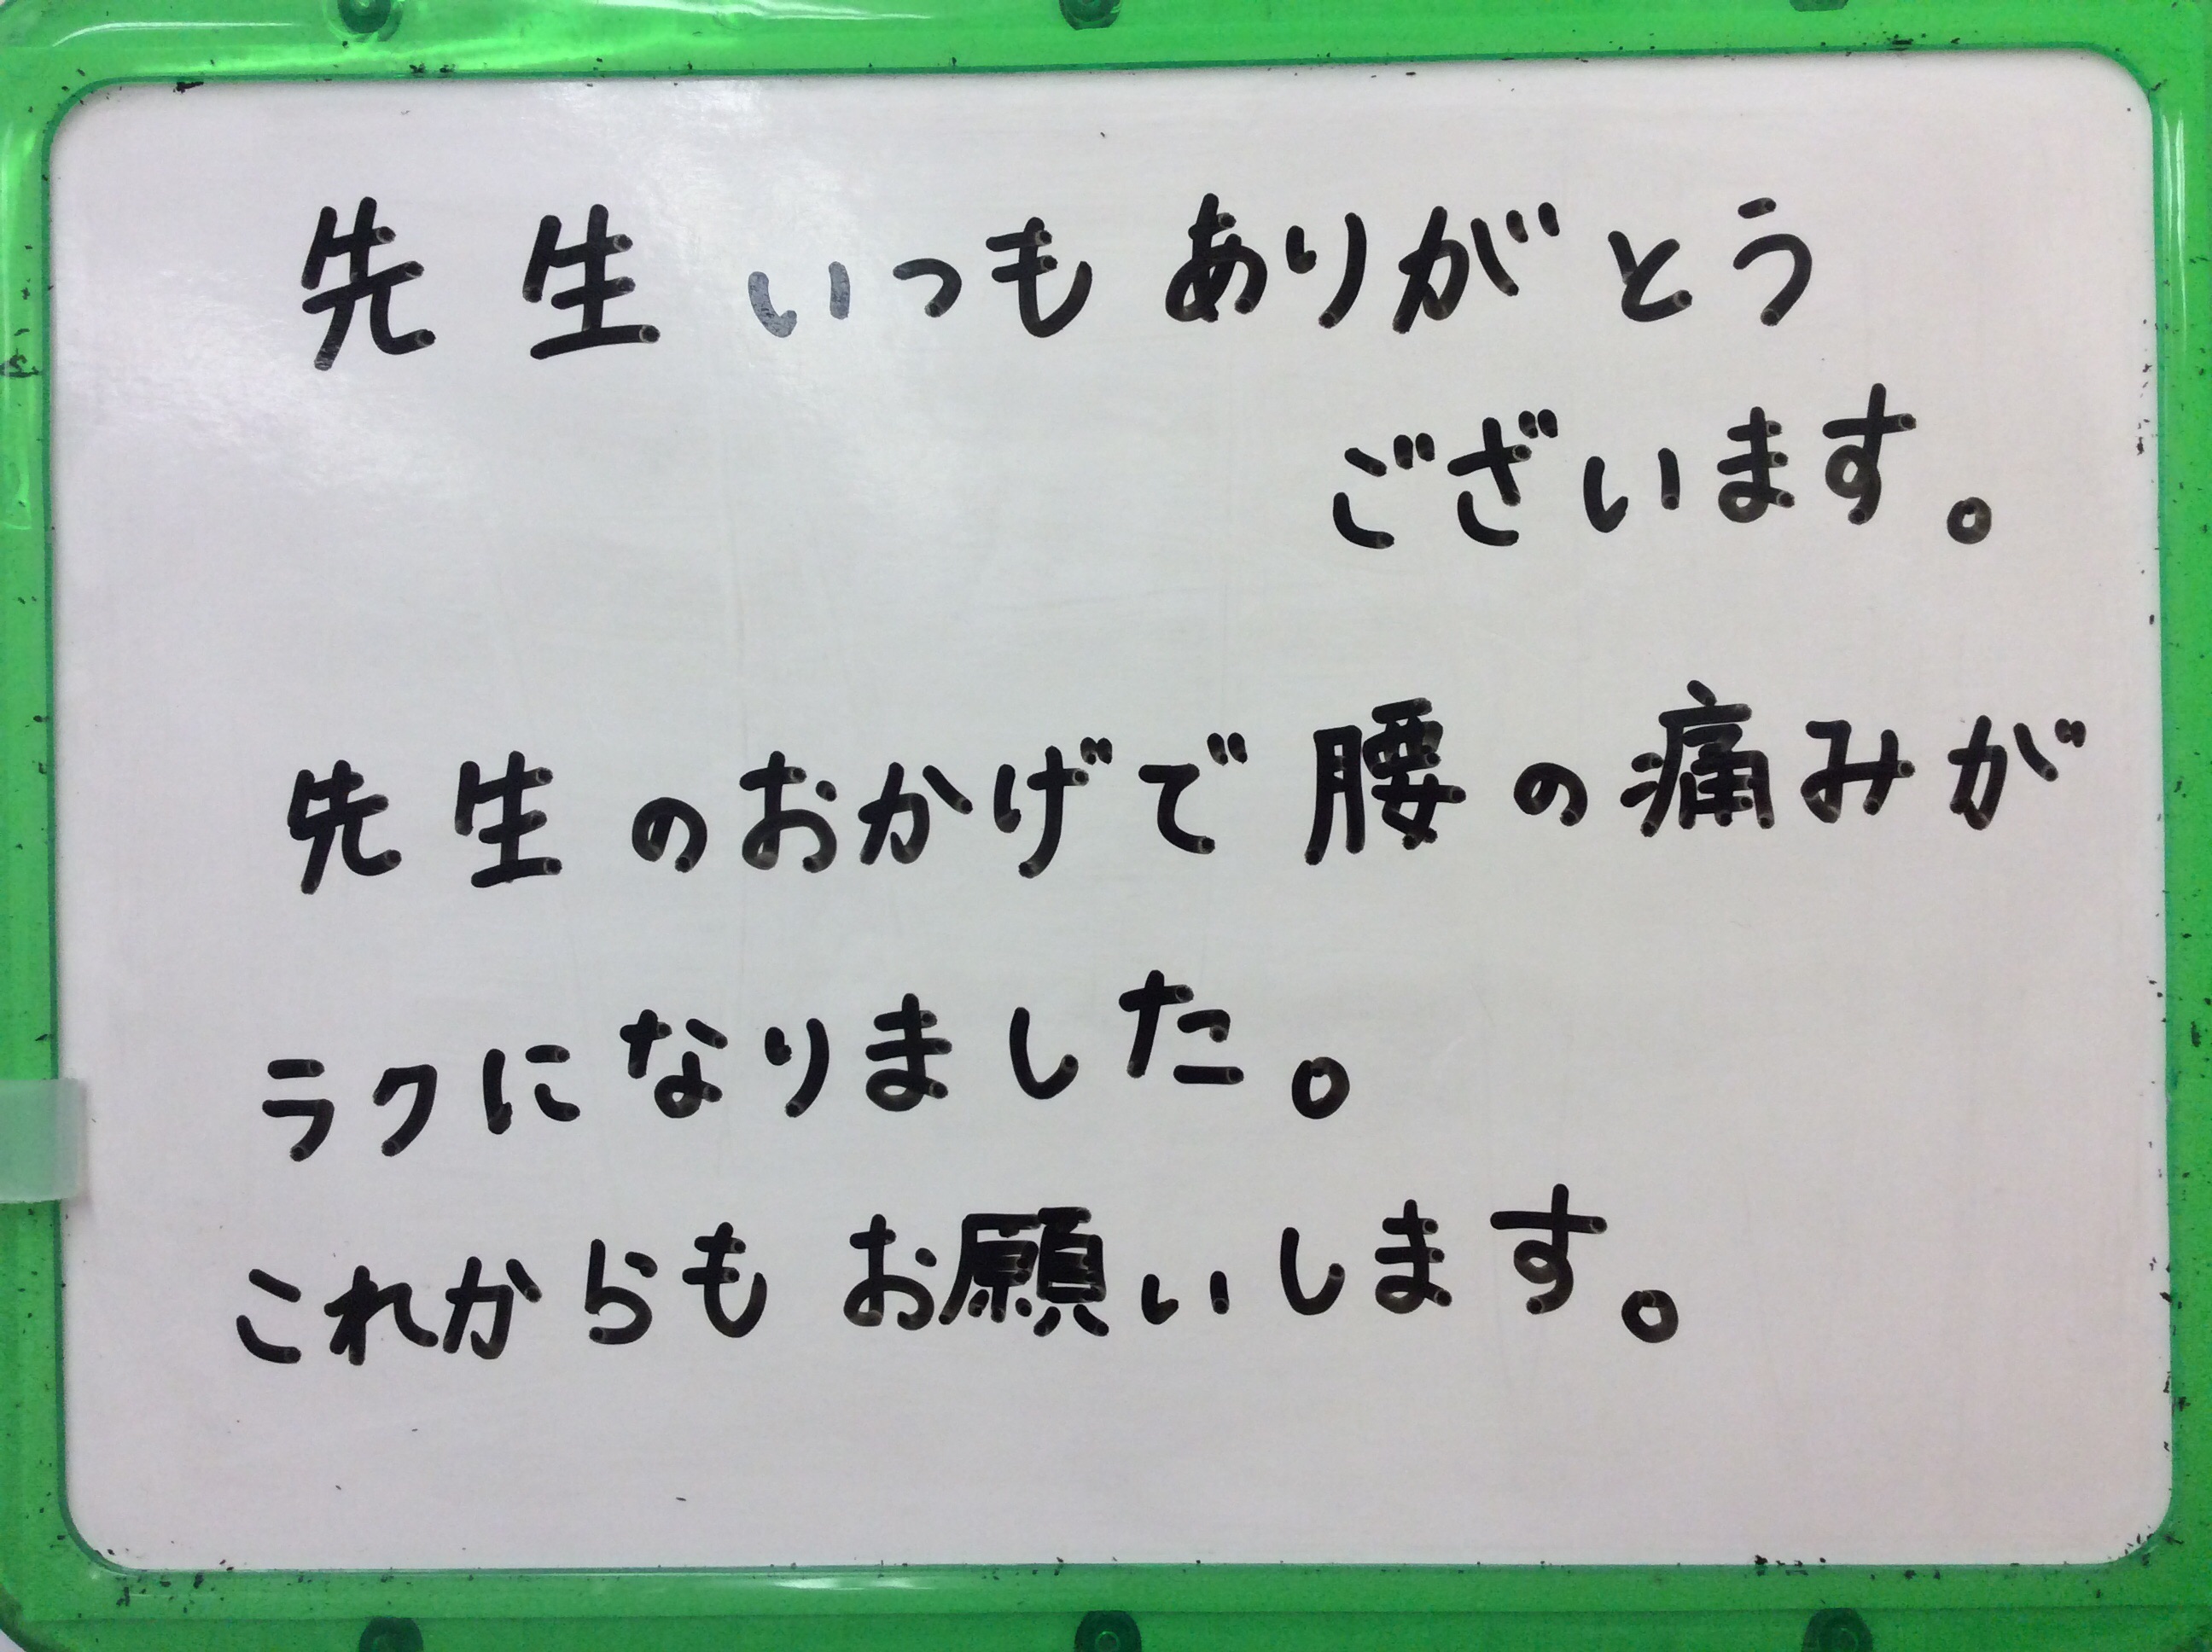 先生いつもありがとう
ございます。
先生のおかげで腰の痛みが
ラクになりました。
これからもお願いします。